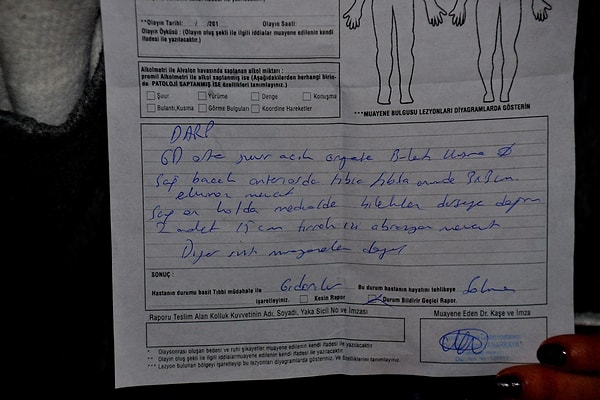 **Olayın Tarihi: / /201 Olayın Saati:
Olayın Öyküsü: (Olayın oluş şekli ile ilgili iddialar muayene edilenin kendi
ifadesi ile yazılacaktır.)
Alkolmetri ile Alveolar havasında saptanan alkol miktarı:
promil Alkolmetri ile alkol saptanmış ise (Aşağıdakilerden herhangi birin-
de PATOLOJİ SAPTANMIŞ İSE özellikleri tanımlayınız.)
Şuur Yürüme Denge Konuşma
Bulantı,Kusma Görme Bulguları Koordine Hareketler
***MUAYENE BULGUSU LEZYONLARI DİYAGRAMLARDA GÖSTERİN
DARP
GD orta şuur açık
Sağ bacak anteriorda tibia 3x3 cm
ekimoz mevcut
Sağ ön kolda medialde bilekten dirseğe doğru
2 adet 15 cm abrazyon mevcut
Diğer sist muayeneler doğal
SONUÇ :
Hastanın durumu basit Tıbbi müdahale ile Giderilir Bu durum hastanın hayatını tehlikeye
işaretleyiniz. Kesin Rapor Durum Bildirir Geçici Rapor.
Raporu Teslim Alan Kolluk Kuvvetinin Adı, Soyadı, Yaka Sicil No ve İmzası
Muayene Eden Dr. Kaşe ve İmza
* Olaysonrası oluşan bedeni ve ruhi şikayetler muayene edilenin kendi ifadesi ile yazılacaktır
** Olayın oluş şekli ile ilgili iddialar muayene edilenin kendi ifadesi ile yazılacaktır.
*** Lezyon bulunan bölgeyi işaretleyip bu lezyonları diyagramlarda gösteriniz, ve özelliklerini tanımlayınız.